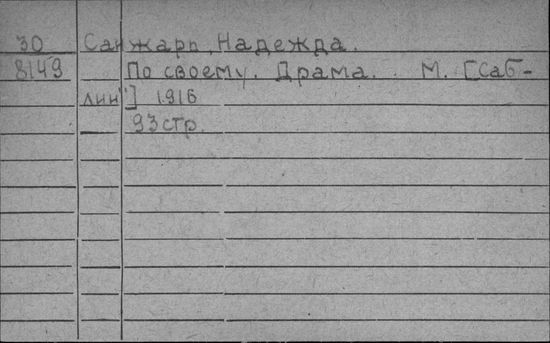 30 Санжарь, Надежда.
8149 По своему. Драма. М. [Саб-
лин"] 1916
93 стр.